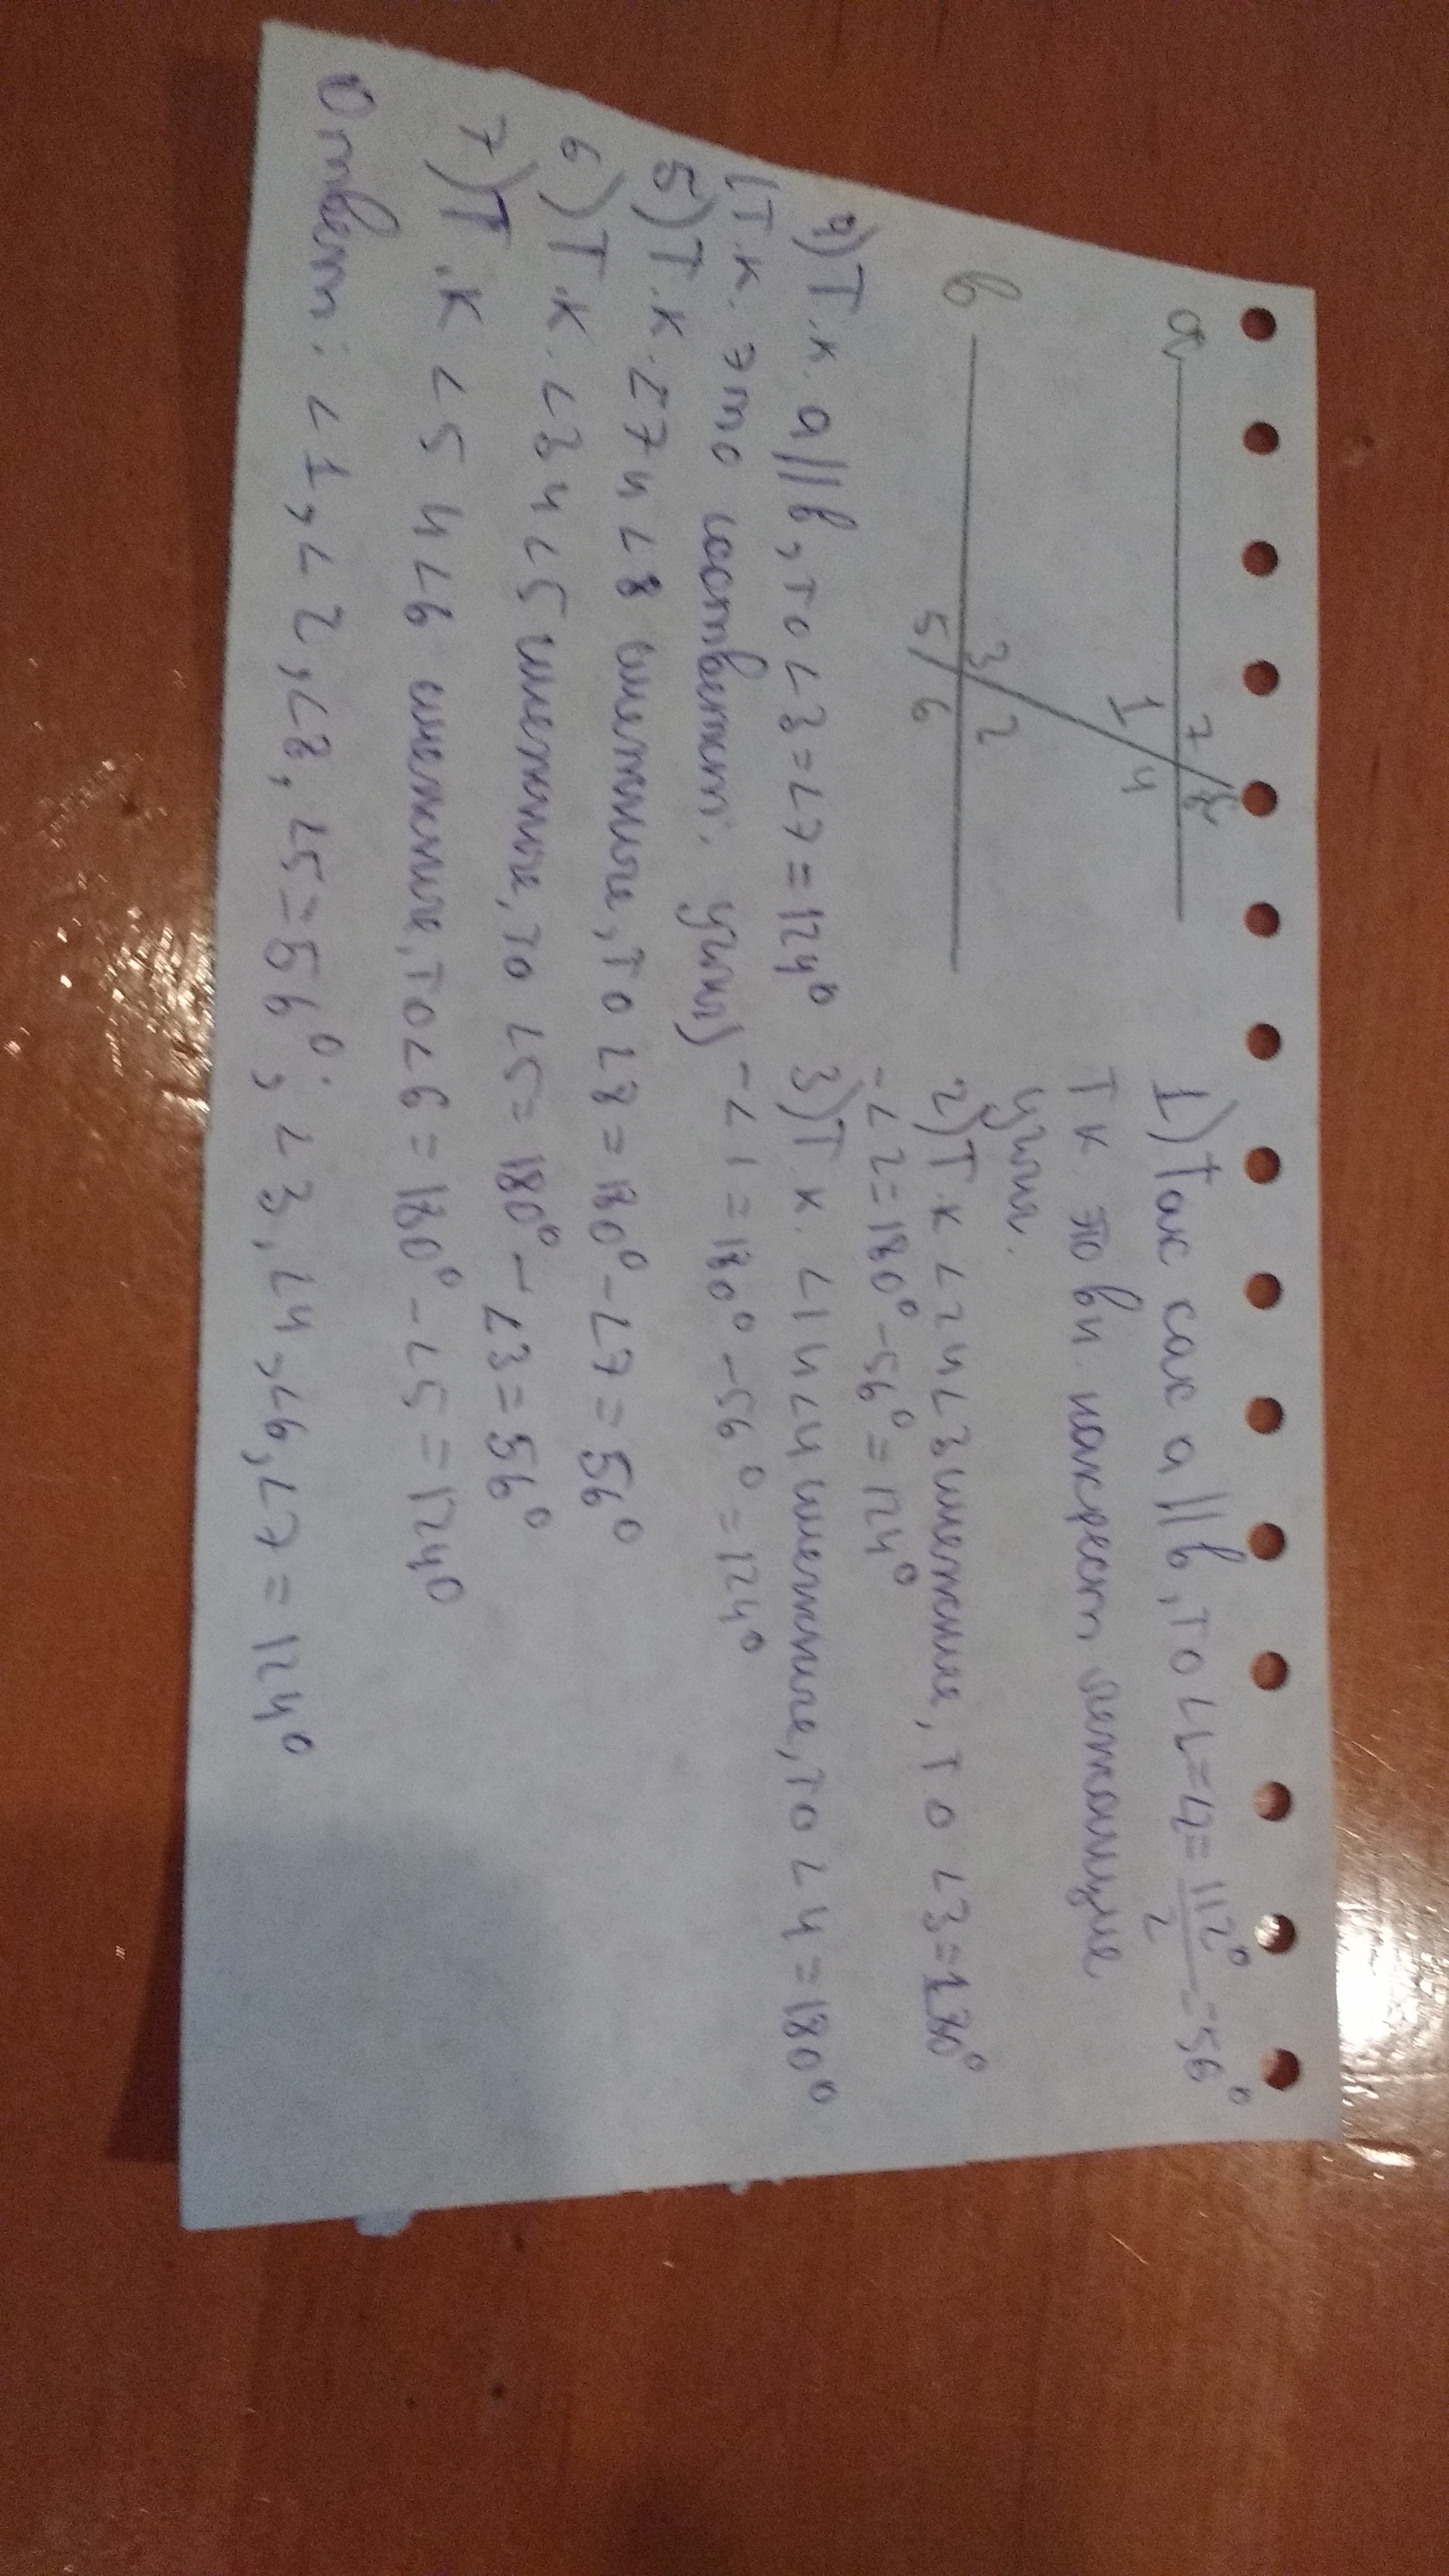 a
7 8
1 4
в
3 2
5 6
1) Так как a||в, то ∠1=∠2= 112°/2 =56°
Т к. это вн. накрест лежащие
углы.
2) Т.к ∠2 и ∠3 смежные, то ∠3=180°
-∠2=180°-56°=124°
4) Т.к. a||в, то ∠3=∠7=124°
3) Т.к. ∠1 и ∠4 смежные, то ∠4=180°
(т.к. это соответст. углы)
-∠1=180°-56°=124°
5) Т.к. ∠7 и ∠8 смежные, то ∠8=180°-∠7=56°
6) Т.к. ∠3 и ∠5 смежные, то ∠5=180°-∠3=56°
7) Т.к ∠5 и ∠6 смежные, то ∠6=180°-∠5=124°
Ответ: ∠1, ∠2, ∠8, ∠5=56°; ∠3, ∠4, ∠6, ∠7=124°